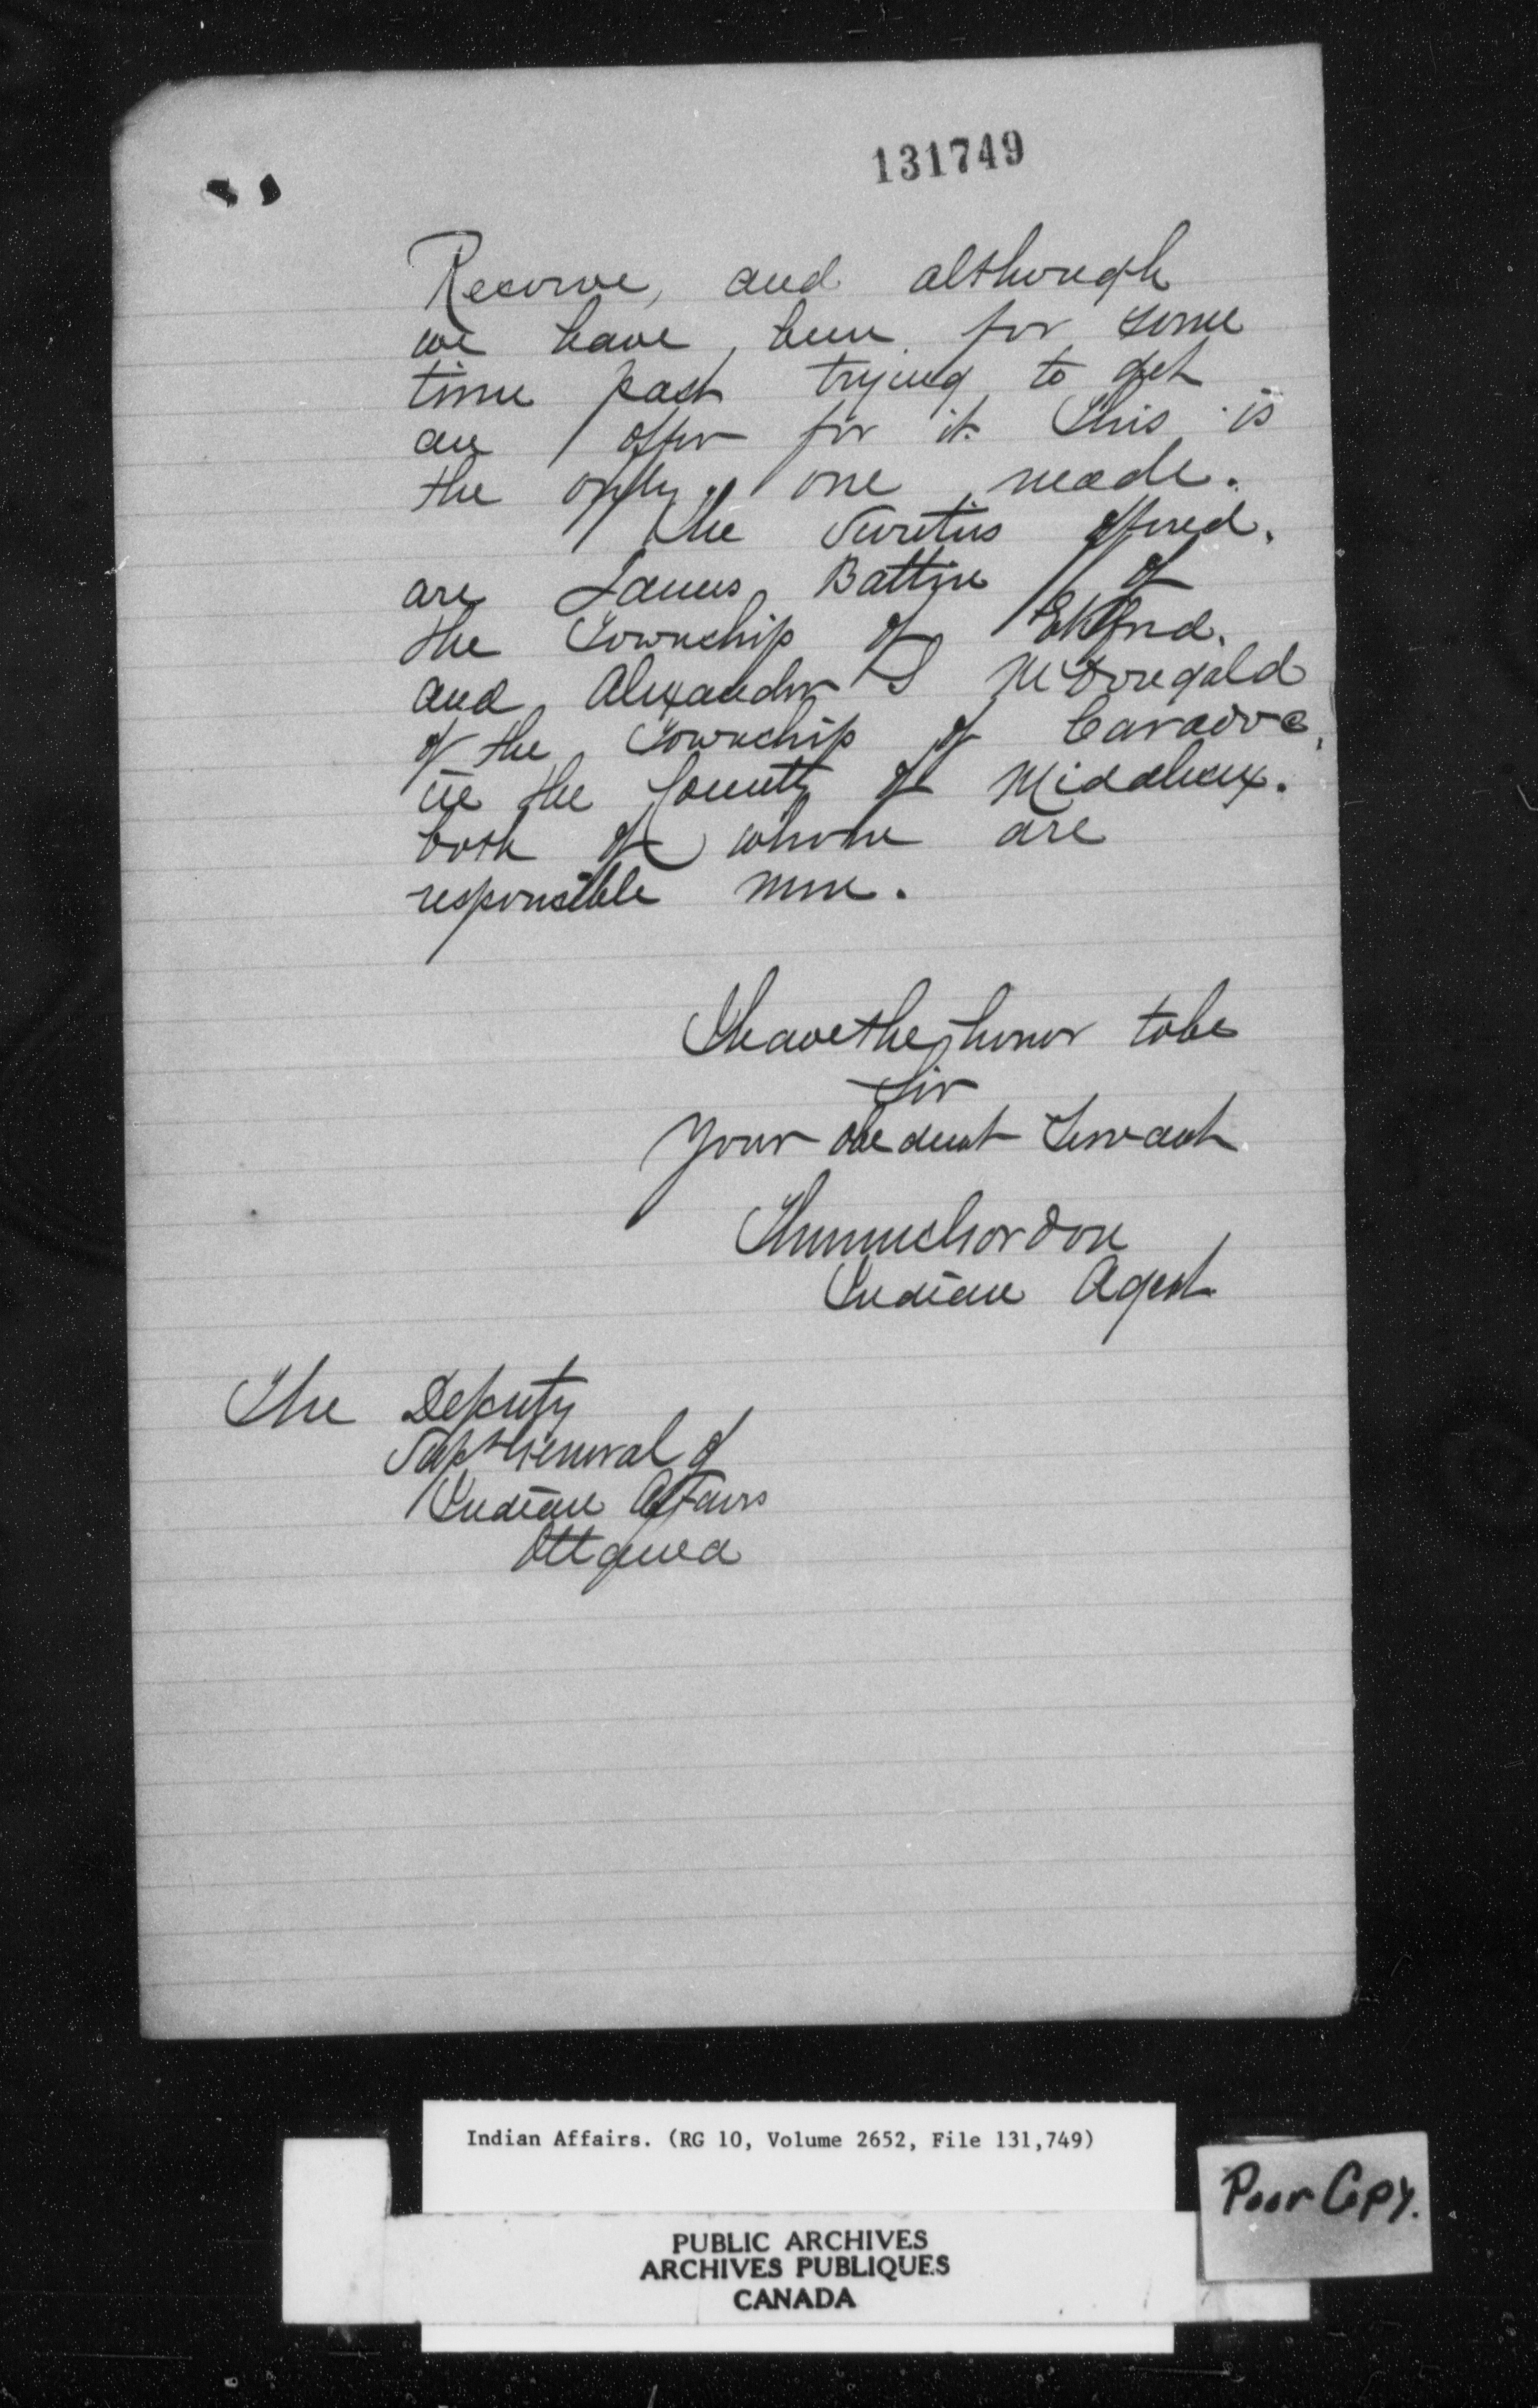 131749
Reserve, and although
we have been for some
time past trying to get
an offer for it this is
the only one made.
The Sureties offered,
are James Battin of
the Township of Ekfrid.
and Alexander S McDougald
of the Township of Caradoc,
in the County of Middlesex.
both of whom are
responsible men.
I have the honor to be
Sir
Your obedient Servant
Gordon
Indian Agent
The Deputy
Supt General of
Indian Affairs
Ottawa
Indian Affairs. (RG 10, Volume 2652, File 131,749)
PUBLIC ARCHIVES
ARCHIVES PUBLIQUES
CANADA
Poor Copy.